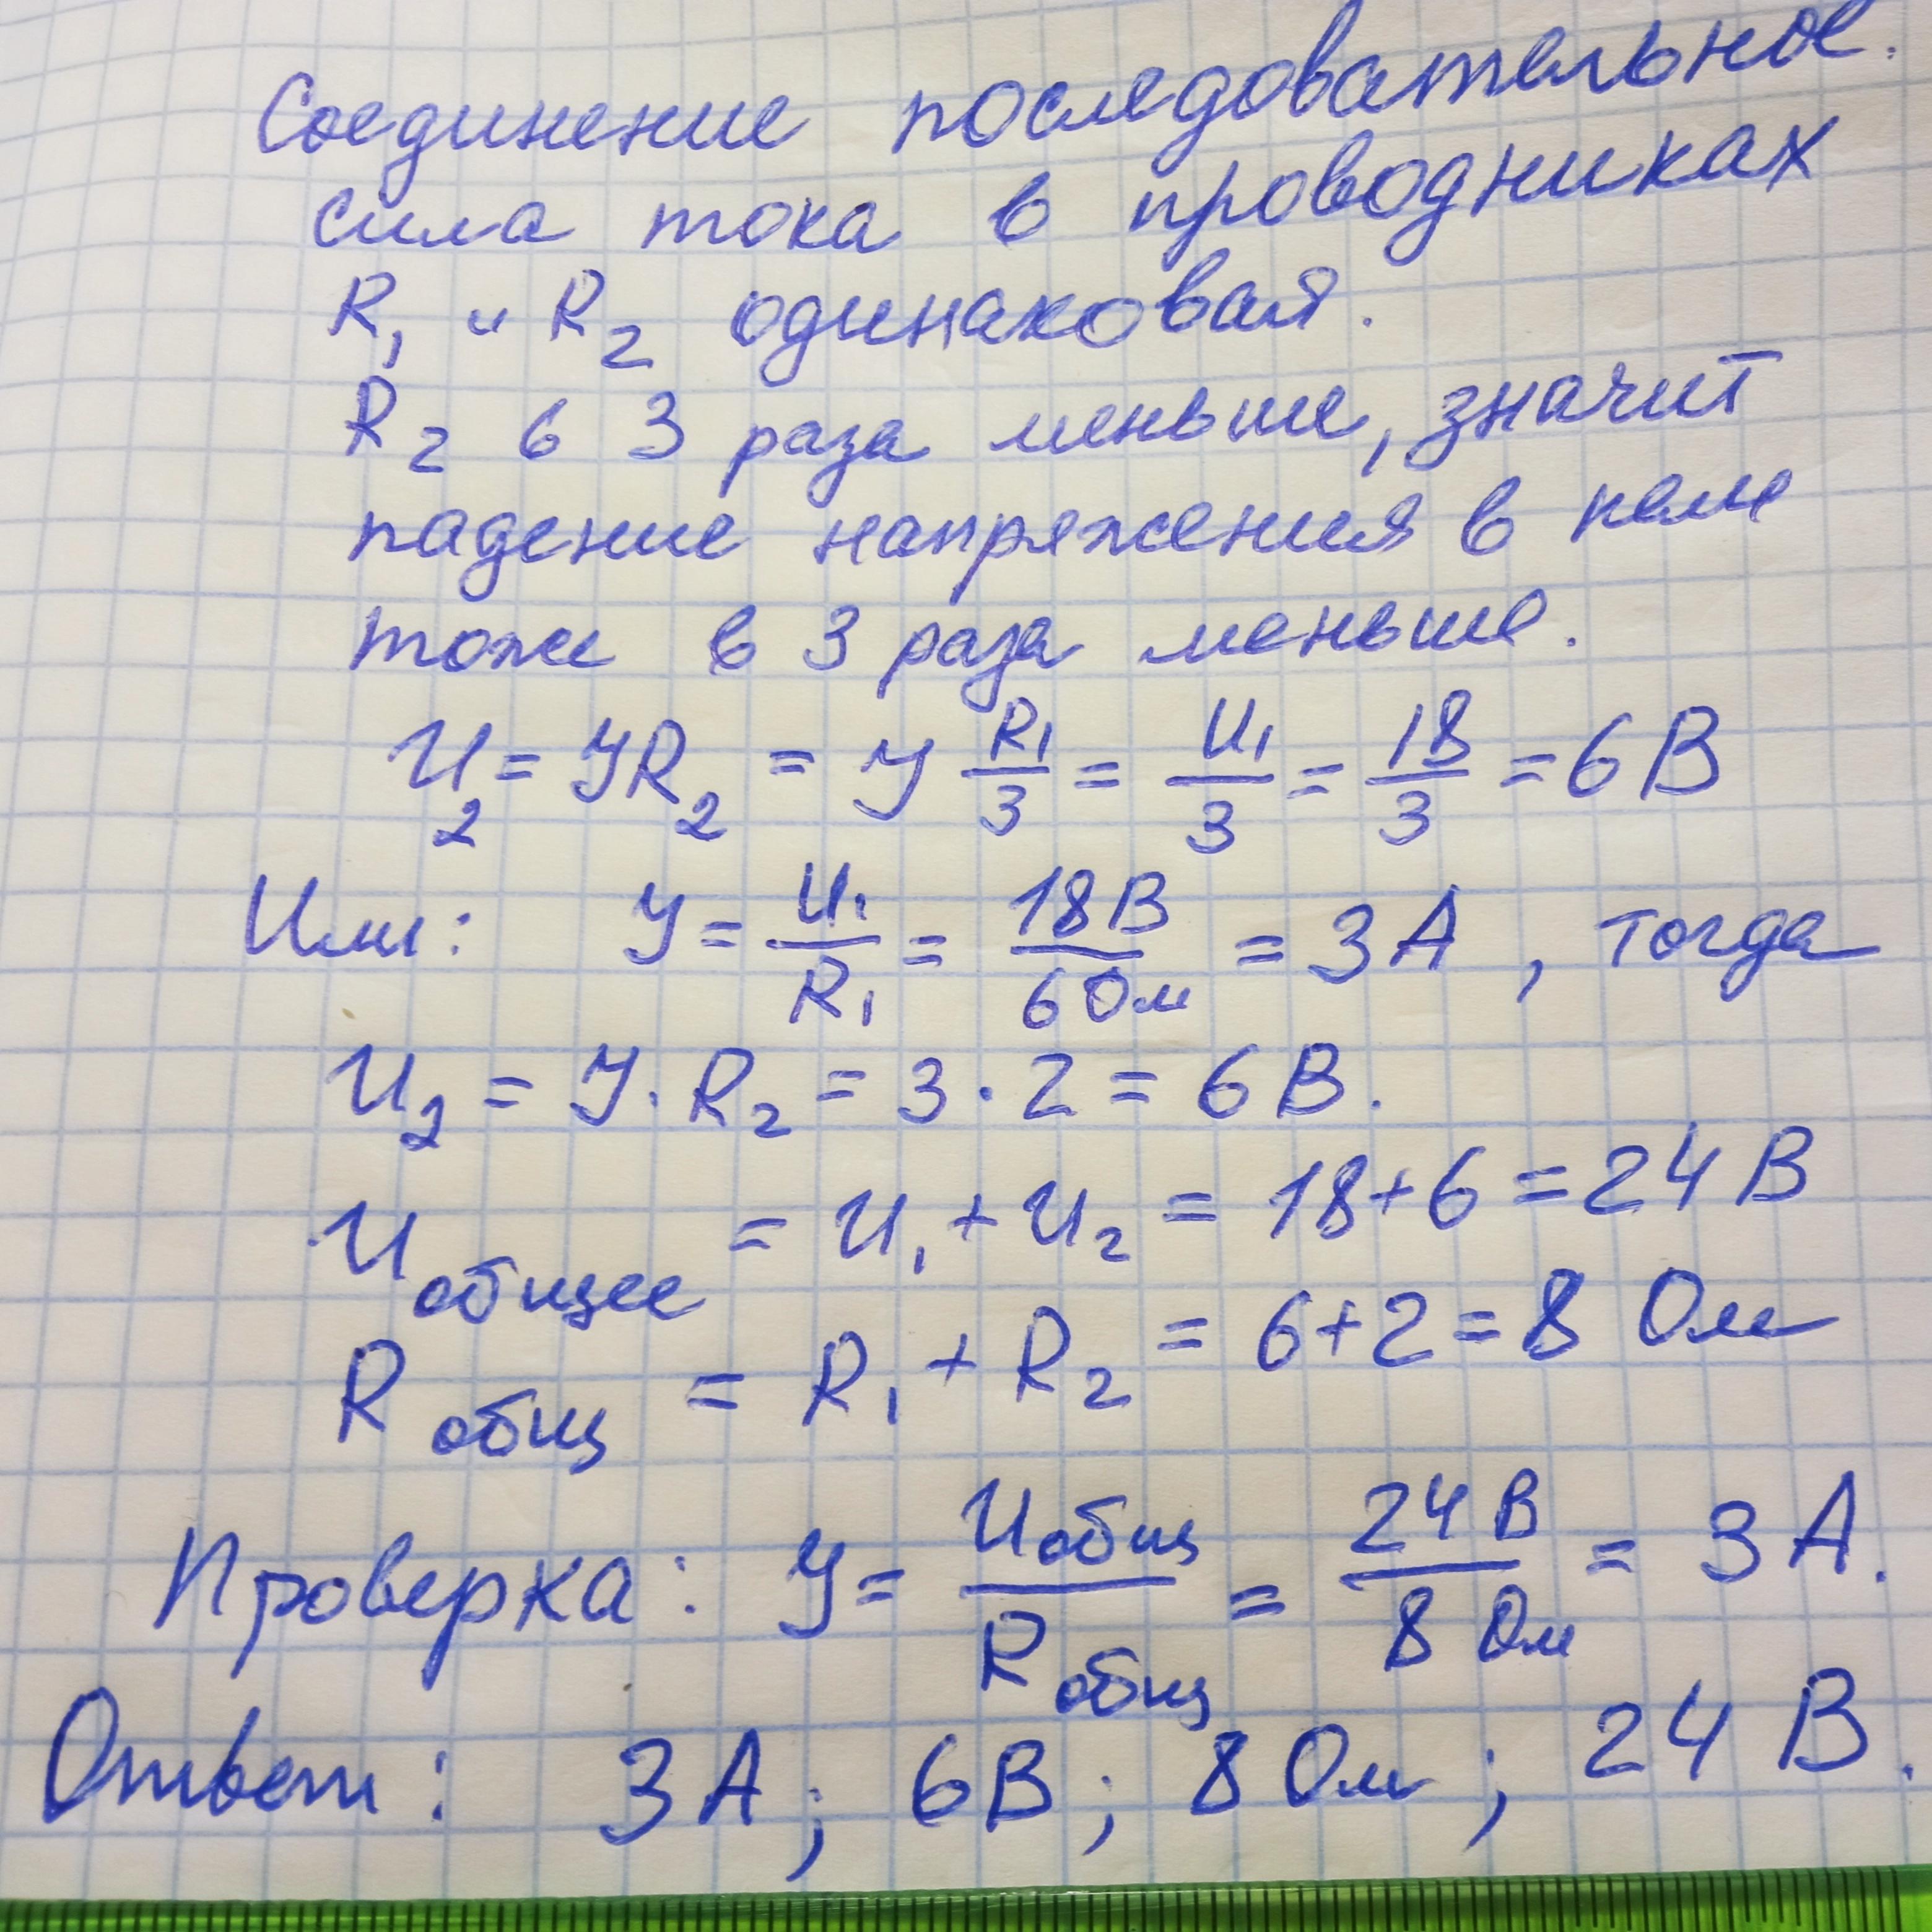 Соединение последовательное.
сила тока в проводниках
R₁ и R₂ одинаковая.
R₂ в 3 раза меньше, значит
падение напряжения в нём
тоже в 3 раза меньше.
U₂ = YR₂ = Y R₁/3 = U₁/3 = 18/3 = 6 В
Или: Y = U₁/R₁ = 18В/6 Ом = 3 А, тогда
U₂ = Y · R₂ = 3 · 2 = 6 В.
U общее = U₁ + U₂ = 18 + 6 = 24 В
R общ = R₁ + R₂ = 6 + 2 = 8 Ом
Проверка: Y = U общ/R общ = 24 В/8 Ом = 3 А.
Ответ: 3 А; 6 В; 8 Ом; 24 В.